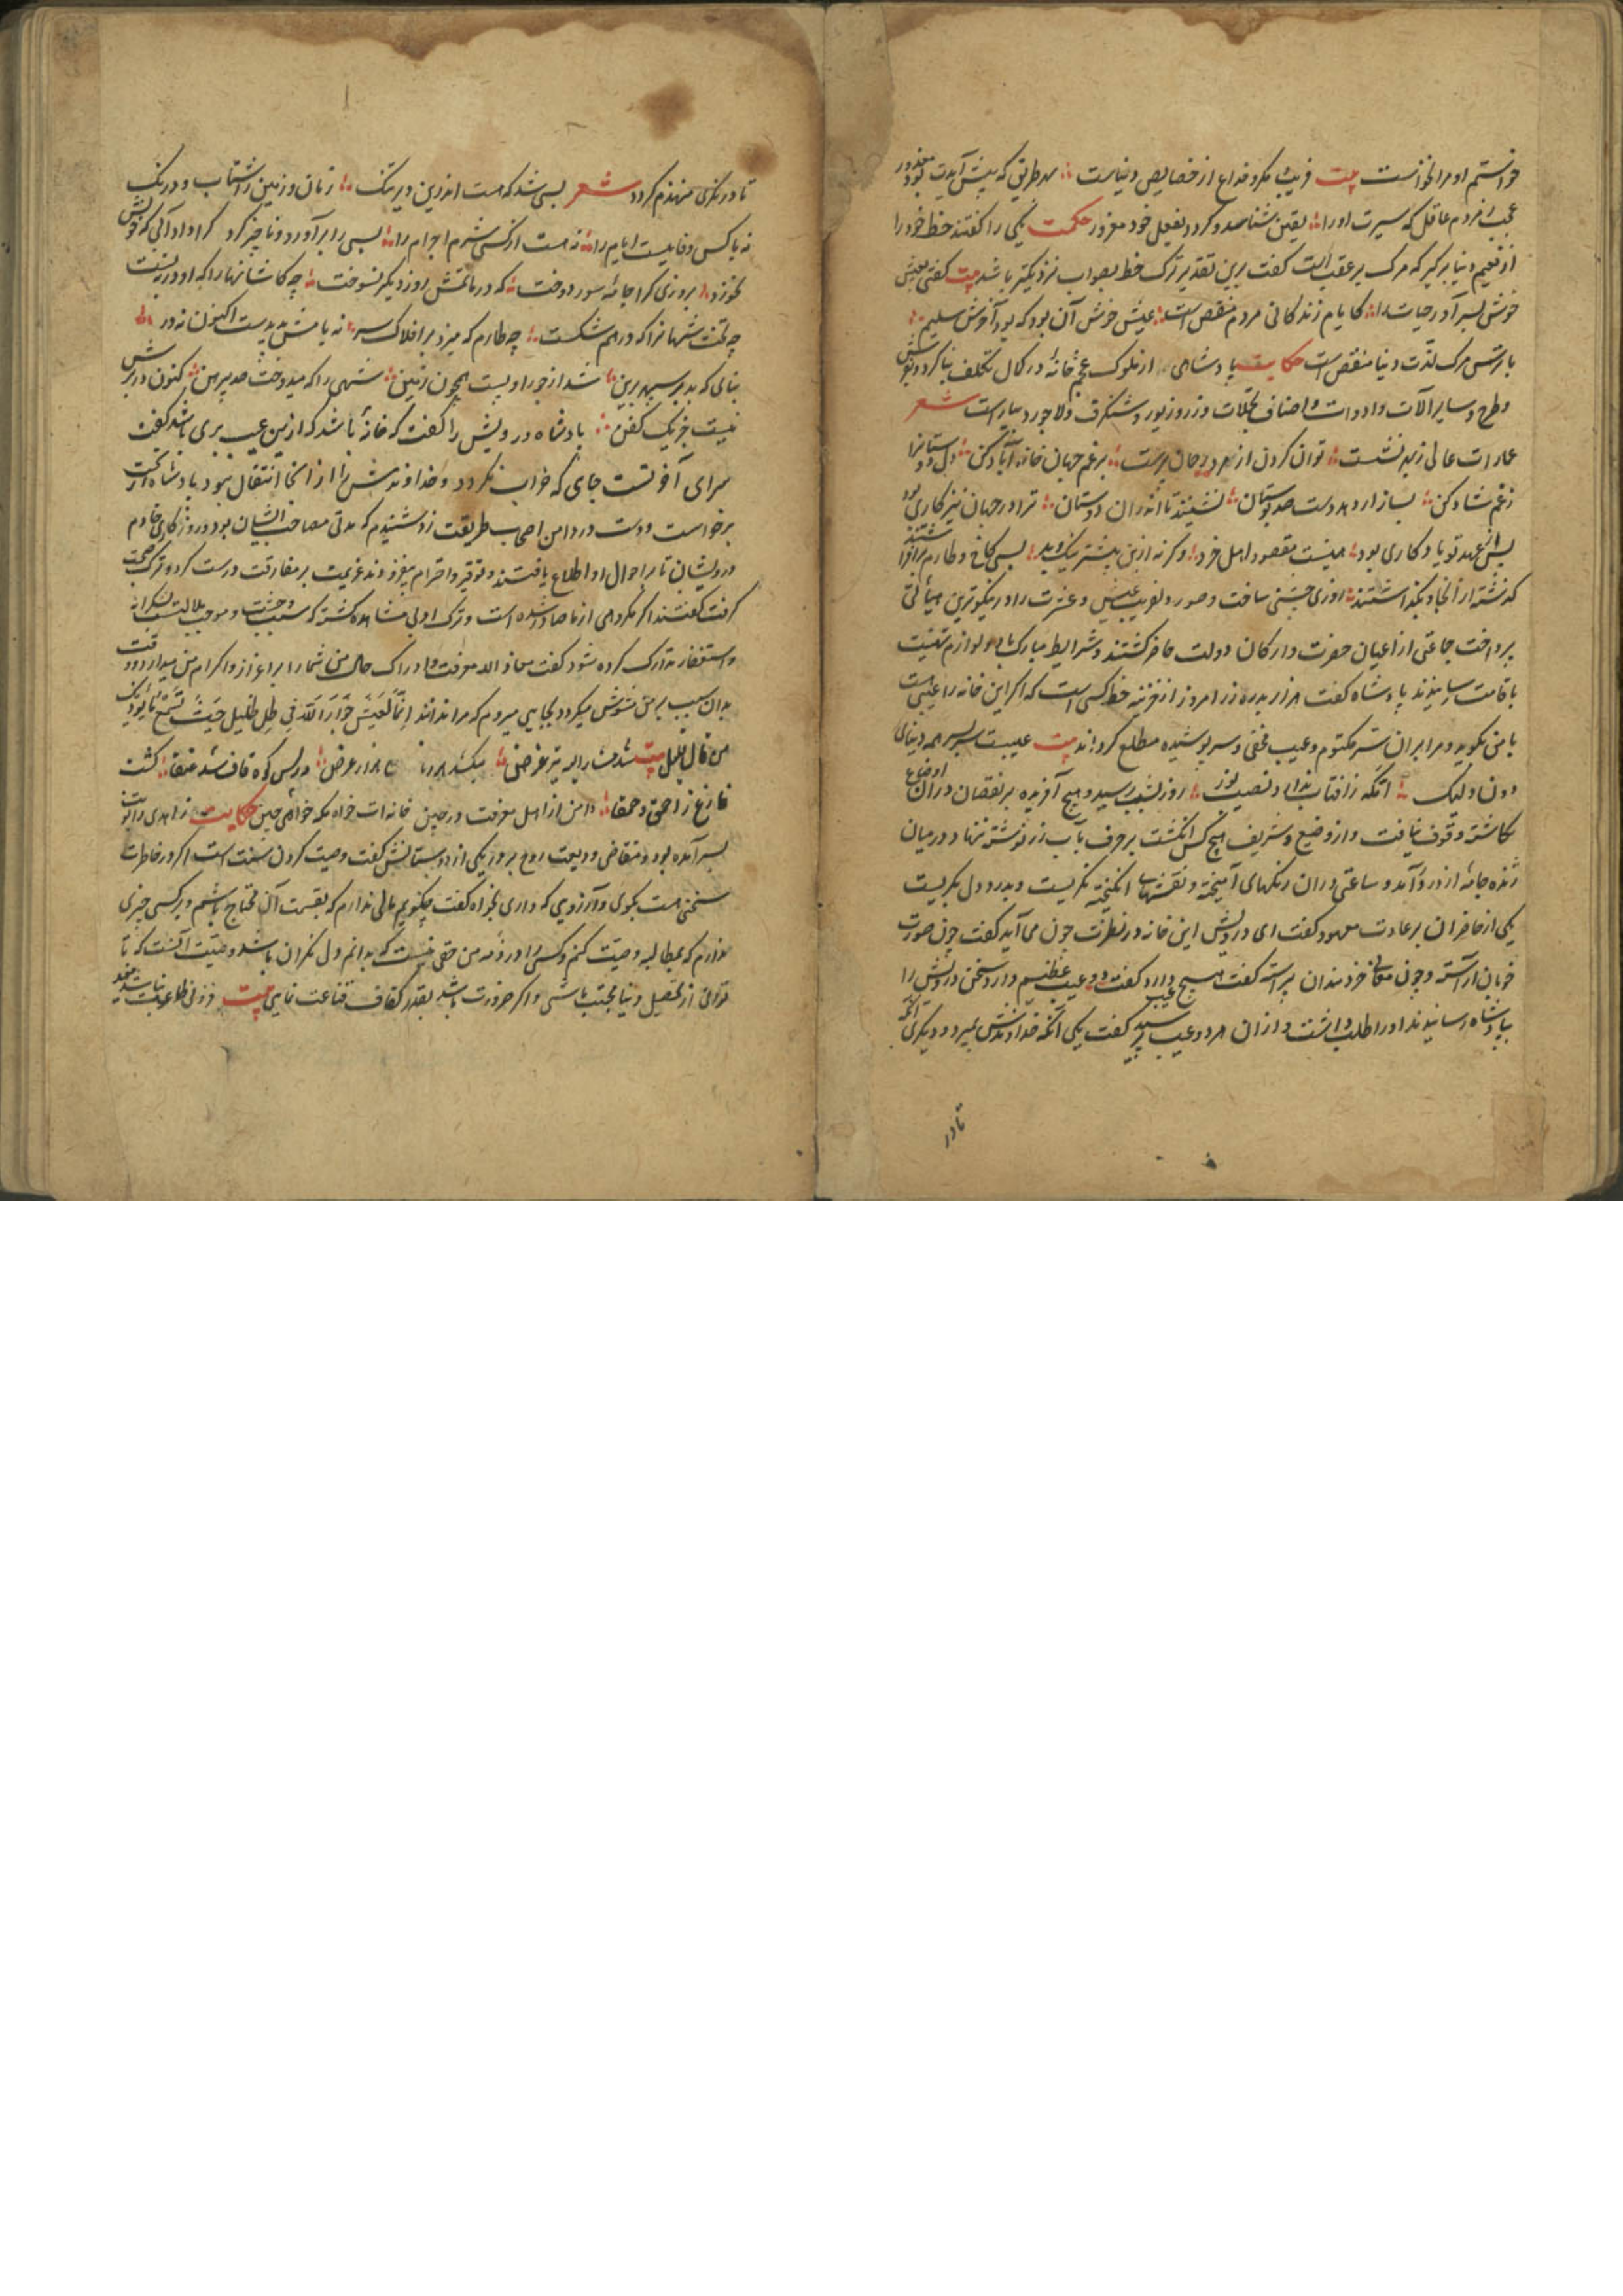 خواستم او مرا نخواست بیت فریب و مکر و خداع از خصایص دنیاست بهر طریق که پیش آیدت معذور بود
عجب ز مردم عاقل که سیرت او را یقین شناسد و کردد بفعل خود مغرور حکمت یکی را کفتند حظ خود را
از نعیم دنیا برکیر که مرک بر عقب است کفت برین تقدیر ترک حظ بصواب نزدیکتر باشد بیت کفتی بعیش
خوش بسر آور حیات را کایام زندکانی مردم منغص است عیش خوش آن بود که بود آخرش سلیم
با ترس مرک لذت دنیا منغص است حکایت پادشاهی از ملوک عجم خانهٔ در کمال تکلف بنا کرد و بفرش
و طرح و سایر آلات و ادوات و اصناف تجملات و زر و زیور و شنکرف و لاجورد بیاراست شعر
عمارات عالی زبهر نشست توان کردن از بهر برغم جهان خانه آباد کن دل دوستانرا
زغم شاد کن بساز ار دهد دست صد بوستان نشینند تا اندران دوستان ترا در جهان نیز کاری بود
پس از عهد تو یادکاری بود همینست مقصود اهل خرد وکرنه ازین پیشتر نیک و بد بسی کاخ و طارم برافراشتند
که نشته از آنجا و بکذاشتند روزی جشنی ساخت و صورت دلفریب عیش و عشرت را در نیکوترین هیأتی
بپرداخت جماعتی از اعیان حضرت و ارکان دولت حاضر کشتند و شرایط مبارک باد و لوازم تهنیت
باقامت رسانیدند پادشاه کفت هزار بدره زر امروز از خزینه حظ کسی است که اکر این خانه را عیبی هست
با من بکوید و مرا بران ستر مکتوم و عیب مخفی و سر پوشیده مطلع کرداند بیت عیبست بسر بسر همه دنیای
دون ولیک آنکه ز آفتاب ندارد نصیب نور روز بشب رسید و هیچ آفریده بر نقصان دران اوضاع
نکاشته وقوف نیافت و از وضیع و شریف هیچ کس انکشت بر حرف بآب زر نوشته ننهاد در میان
ژنده جامهٔ از در درآمد و ساعتی دران رنکهای آمیخته و نقشهای انکیخته نکریست و بدرد دل بکریست
یکی از حاضران بر عادت معهود کفت ای درویش این خانه در نظرت چون می آید کفت چون صورت
خوبان آراسته و چون معانی خردمندان پیراسته کفت هیچ عیب دارد کفت دو عیب عظیم دارد سخن درویش را
بپادشاه رسانیدند او را طلب داشت و از ان هر دو عیب پرسید کفت یکی آنکه خداوندش بمیرد و دیکری آنکه
تا در
تا در نکری منهدم کردد شعر بسی شد که هست اندرین دیر تنک زمان و زمین را شتاب و درنک
نه با کس وفاییست ایام را نه هست از کسی شرم اجرام را بسی را برآورد و ناچیز کرد کرا داد آبی که خونش
نخورد بروزی کرا جامهٔ سور دوخت که در ماتمش روز دیکر نسوخت چه کاشانها را که او در نبست
چه تخت شهانرا که در هم شکست چه طارم که میزد بر افلاک سر نه بامش پدیدست اکنون نه در
بنای که بد بر سپهر برین شد از جور او پست همچون زمین شهی را که میدوخت صد پیرهن کنون در برش
نیست جز یک کفن پادشاه درویش را کفت که خانهٔ باشد که ازین عیب بری باشد کفت
سرای آخرتست جای که خراب نکردد و خداوندش را از آنجا انتقال نبود پادشاه از تخت
برخواست و دست در دامن اصحاب طریقت زد شنیدم که مدتی مصاحب ایشان بود و روزکاری خادم
درویشان تا بر احوال او اطلاع یافتند و توقیر و احترام بیفزودند عزیمت بر مفارقت درست کرد و ترک صحبت
کرفت کفتند اکر مکروهی از ما صادر شده است و ترک ادبی مشاهده کشته که سبب وحشت و موجب ملالت بشکرانه
و استغفار تدارک کرده شود کفت معاذ الله معرفت و ادراک حال من شما را بر اعزاز و اکرام من میدارد و وقت
بدان سبب بر من مشوش میکردد بجایی میروم که مرا ندانند
من قال قیل بیت شد مشار الیه تیر غرض میکشد هزار عرض در پس کوه قاف شد عنقا کشت
فارغ ز احمق و حمقا دامن از اهل معرفت درچین خانه ات خواه مکه خواهی چین حکایت زاهدی را نوبت
بسر آمده بود و متقاضی ودیعت روح بر در یکی از دوستانش کفت وصیت کردن سنت است اکر در خاطرت
سخنی هست بکوی و آرزویی که داری بخواه کفت چکویم مالی ندارم که بقسمت آن محتاج باشم و بر کسی چیزی
ندارم که بمطالبه وصیت کنم و کسی را در ذمهٔ من حقی نیست که بدانم دل نکران باشد وصیت آنست که تا
توانی از تحصیل دنیا مجتنب باشی و اکر ضرورت باشد بقدر کفاف قناعت نمایی بیت